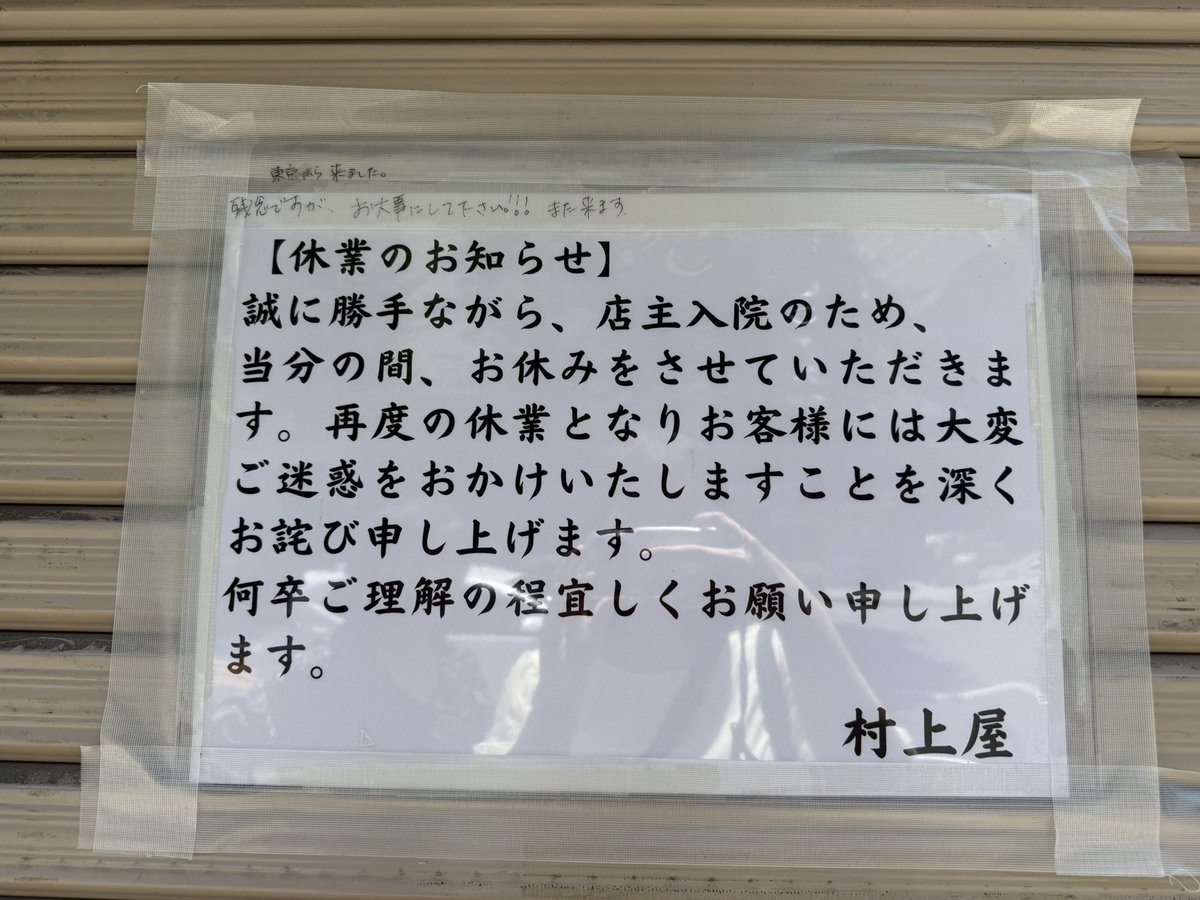 東京から来ました。
残念ですが、お大事にして下さい!!! また来ます
【休業のお知らせ】
誠に勝手ながら、店主入院のため、
当分の間、お休みをさせていただきま
す。再度の休業となりお客様には大変
ご迷惑をおかけいたしますことを深く
お詫び申し上げます。
何卒ご理解の程宜しくお願い申し上げ
ます。
村上屋